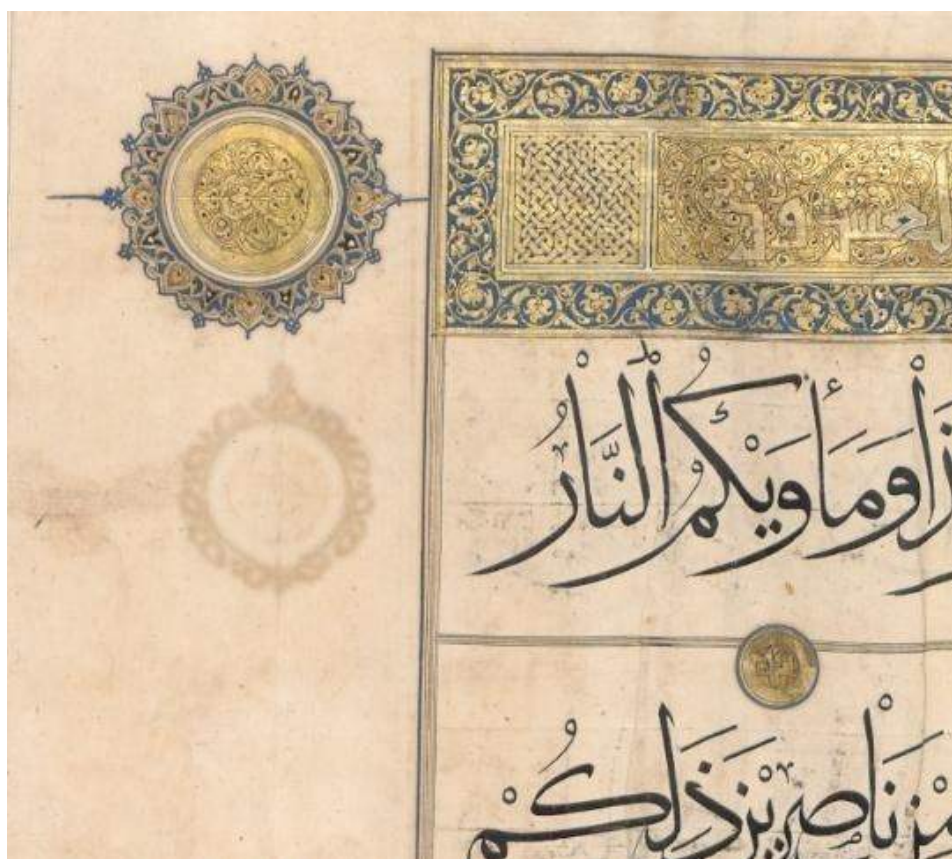 وَمَأْوَيكُمُ النَّارُ
مِنْ نَاصِرِيْنَ ذَلِكُمْ